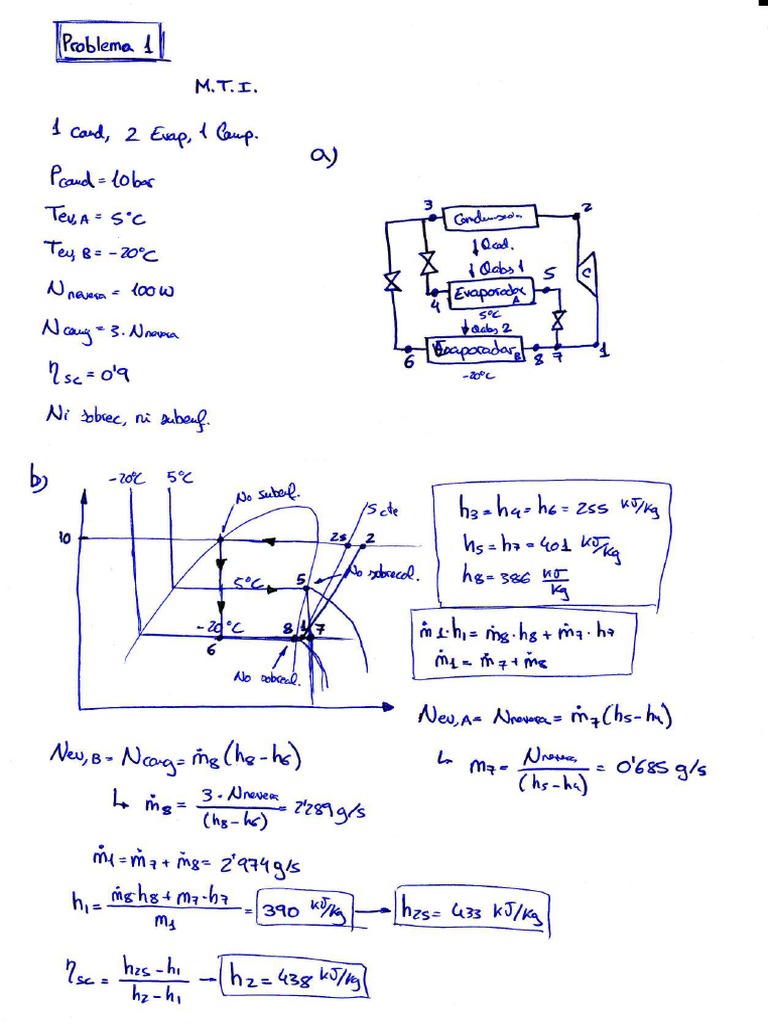 Problema 1
M.T.I.
1 Cond, 2 Evap, 1 Comp.
Pcond = 10 bar
Tev,A = 5°C
Tev,B = -20°C
Nnevera = 100 W
Ncong = 3 · Nnevera
ηsc = 0'9
Ni sobrec, ni subenf.
a)
3
2
Condensador
↓ Qced.
↓ Qabs 1
5
C
Evaporador A
4
5°C
↓ Qabs 2
Evaporador B
6
8
7
1
-20°C
b)
-20°C
5°C
No subenf.
S cte
10
2s
2
5°C
5
No sobrecal.
-20°C
8
1
7
6
No sobrecal.
h3 = h4 = h6 = 255 kJ/kg
h5 = h7 = 401 kJ/kg
h8 = 386 kJ/kg
ṁ1·h1 = ṁ8·h8 + ṁ7·h7
ṁ1 = ṁ7 + ṁ8
Nev,A = Nnevera = ṁ7(h5-h4)
↳ m7 = Nnevera/(h5-h4) = 0'685 g/s
Nev,B = Ncong = ṁ8(h8-h6)
↳ ṁ8 = 3·Nnevera/(h8-h6) = 2'289 g/s
ṁ1 = ṁ7 + ṁ8 = 2'974 g/s
h1 = (ṁ8·h8 + m7·h7)/m1 = 390 kJ/kg → h2s = 433 kJ/kg
ηsc = (h2s-h1)/(h2-h1) → h2 = 438 kJ/kg